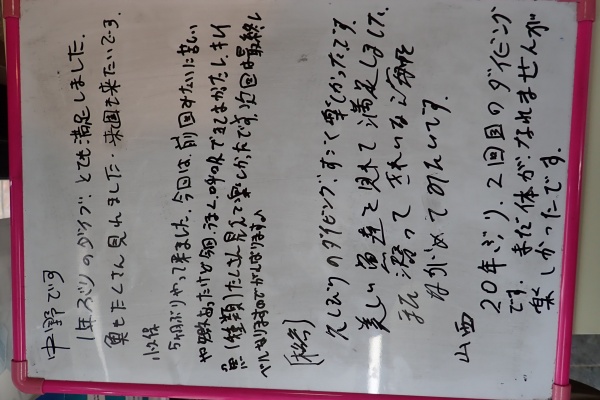 中野です
1年ぶりのダイブ。とても満足しました。
魚もたくさん見れました。来週も来たいです。
5ヶ月ぶりやって来ました。今回は、前回みたいに苦しい
あったけど今回うまく呼吸できてよかったし、キレイ
魚(種類)たくさん見えて楽しかったです。次回は最終レ
ベルなりますのでがんばります。
久しぶりのダイビング、すごく楽しかったです。
美しい魚達を見れて満足しました。
また潜って きれいな
ながめてみたいです。
山西
20年ぶり、2回目のダイビング
です。まだ体がなれませんが
楽しかったです。